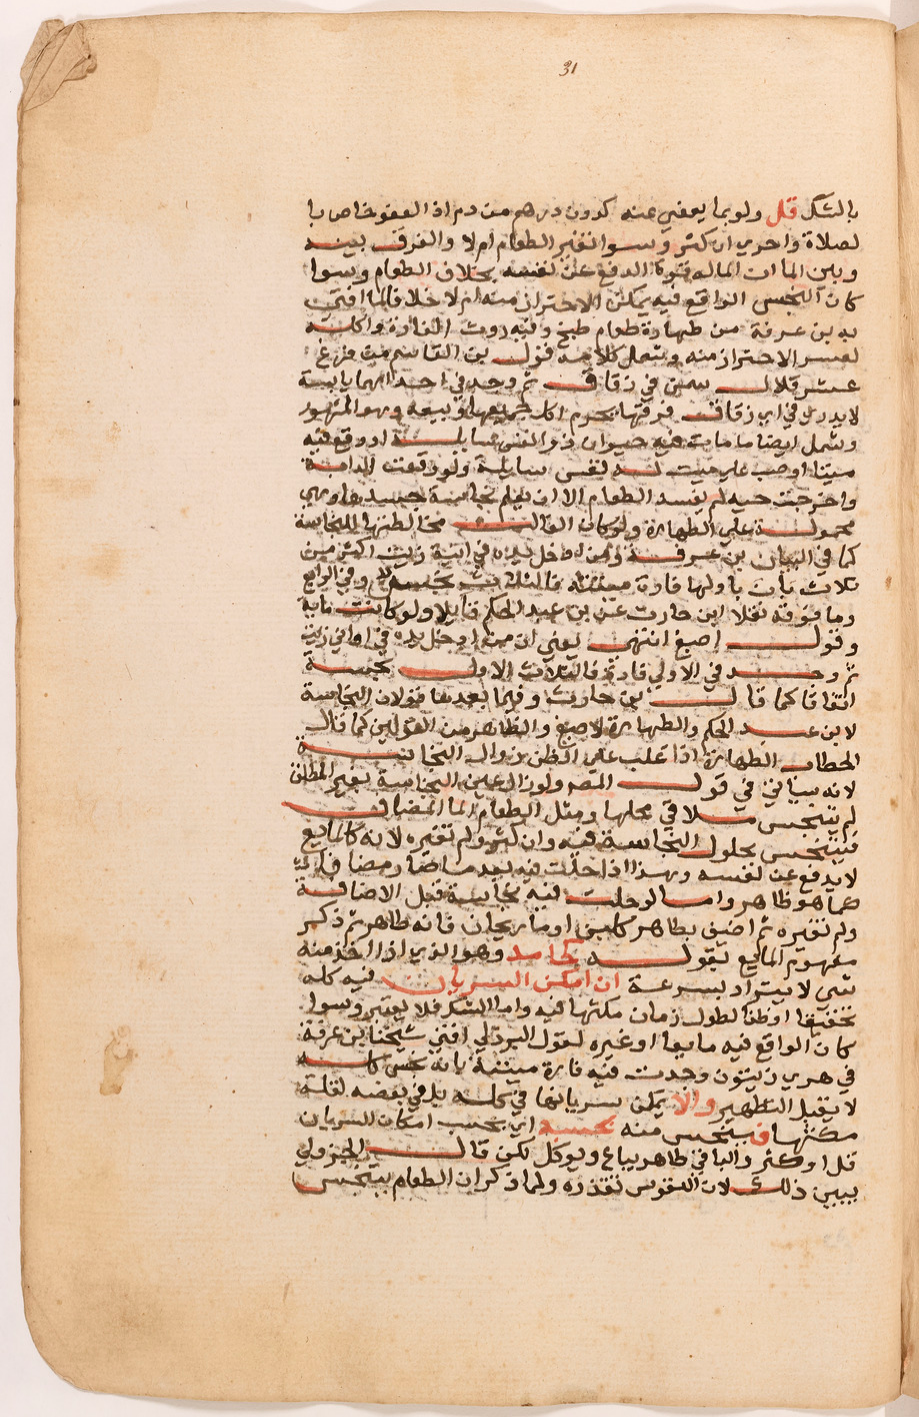 31
بالشك قل ولو بما يعفي عنه كدون درهم من دم اذ العفو خاص با
لصلاة واحري ان كثر وسوا تغير الطعام ام لا والفرق بينه
وبين الما ان الما له قوة الدفع عن نفسه بخلاف الطعام وسوا
كان النجس الواقع فيه يمكن الاحتراز منه ام لا خلافا لما افتي
به بن عرفة من طهارة طعام طبخ وفيه روث الفارة واكله
لعسر الاحتراز منه وشمل كلامه قول بن القاسم من فرغ
عشر قلال سمن في زقاق ثم وجد في احداهما يابسة
لا يدري في اي زقاق فرقها يحرم اكل جميعها وبيعه وهو المشهور
وشمل ايضا ما مات فيه حيوان ذو نفس سايلة او وقع فيه
ميتا او صب علي ميت له نفس سايلة ولو وقعت الدابة
واخرجت حيه لم يفسد الطعام الا ان يعلم نجاسة جسدها وهي
محمولة علي الطهارة ولو كان الغالب مخالطتها للنجاسة
كما في البيان بن عرفة ومن ادخل يده في انية زيت اكثر من
ثلاث بان باولها فارة ميتة فالثلاث نجسة وفي الرابع
وما فوقه نقلا ابن حارث عن بن عبد الحكم قايلا ولو كانت ماية
وقول اصبغ انتهي يعني ان من ادخل يده في اواني زيت
ثم وجد في الاولي فارة فالثلاث الاول نجسة
اتفاقا كما قال بن حارث وفيما بعدها قولان النجاسة
لابن عبد الحكم والطهارة لاصبغ والظاهر من القولين كما قال
الحطاب الطهارة اذا غلب علي الظن زوال النجاسة
لانه سياتي في قول المصـ ولو زال عين النجاسة بغير المطلق
لم يتنجس ملاقي محلها ومثل الطعام الما المضاف
فيتنجس بحلول النجاسة فيه وان كثر ولم تغيره لانه كالمايع
لا يدفع عن نفسه وهذا اذا حلت فيه بعد ما صار مضافا
كما هو ظاهر واما لو حلت فيه نجاسة قبل الاضافة
ولم تغيره ثم اضيف بطاهر كلبن او ما ريحان فانه طاهر ثم ذكر
مفهوم المايع بقوله كجامد وهو الذي اذا اخذ منه
شي لا يتراد بسرعة ان امكن السريان فيه كله
تحقيقا او ظنا لطول زمان مكثها فيه واما الشك فلا يعتبر وسوا
كان الواقع فيه مايعا او غيره لقول البرزلي افتي شيخنا بن عرفة
في هري زيتون وجدت فيه فارة ميتة بانه نجس كله
لا يقبل التطهير والا يمكن سريانها في كله بل في بعضه لقلة
مكثها فيتنجس منه بحسبه اي بحسب امكان السريان
قل او كثر والباقي طاهر يباع ويوكل لكن قال الجزولي
يبين ذلك لان النفوس تقذره ولما ذكر ان الطعام يتنجس